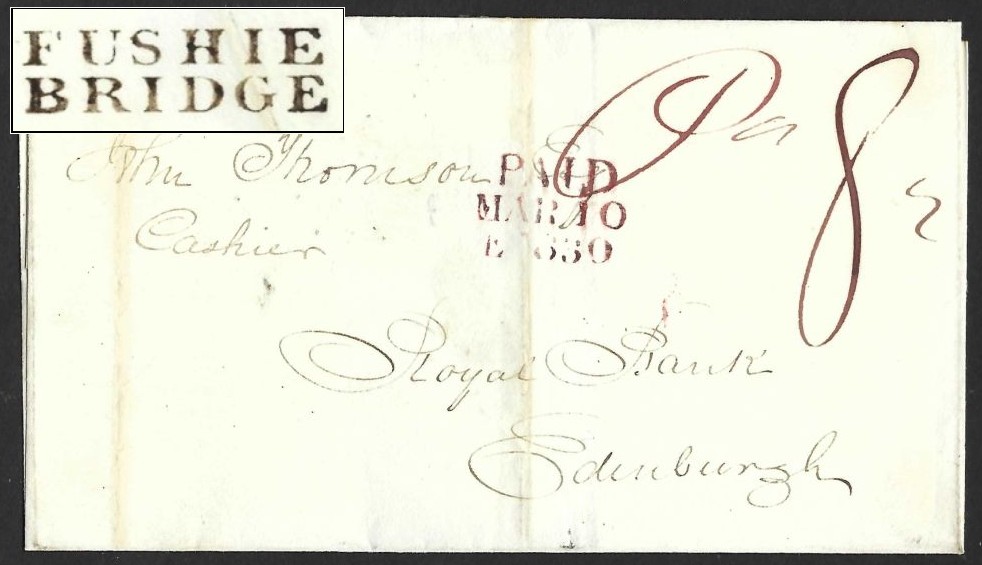 FUSHIE
BRIDGE
Pd 8
John Thomson Esqr
Cashier
PAID
MAR 10
E 1830
Royal Bank
Edinburgh